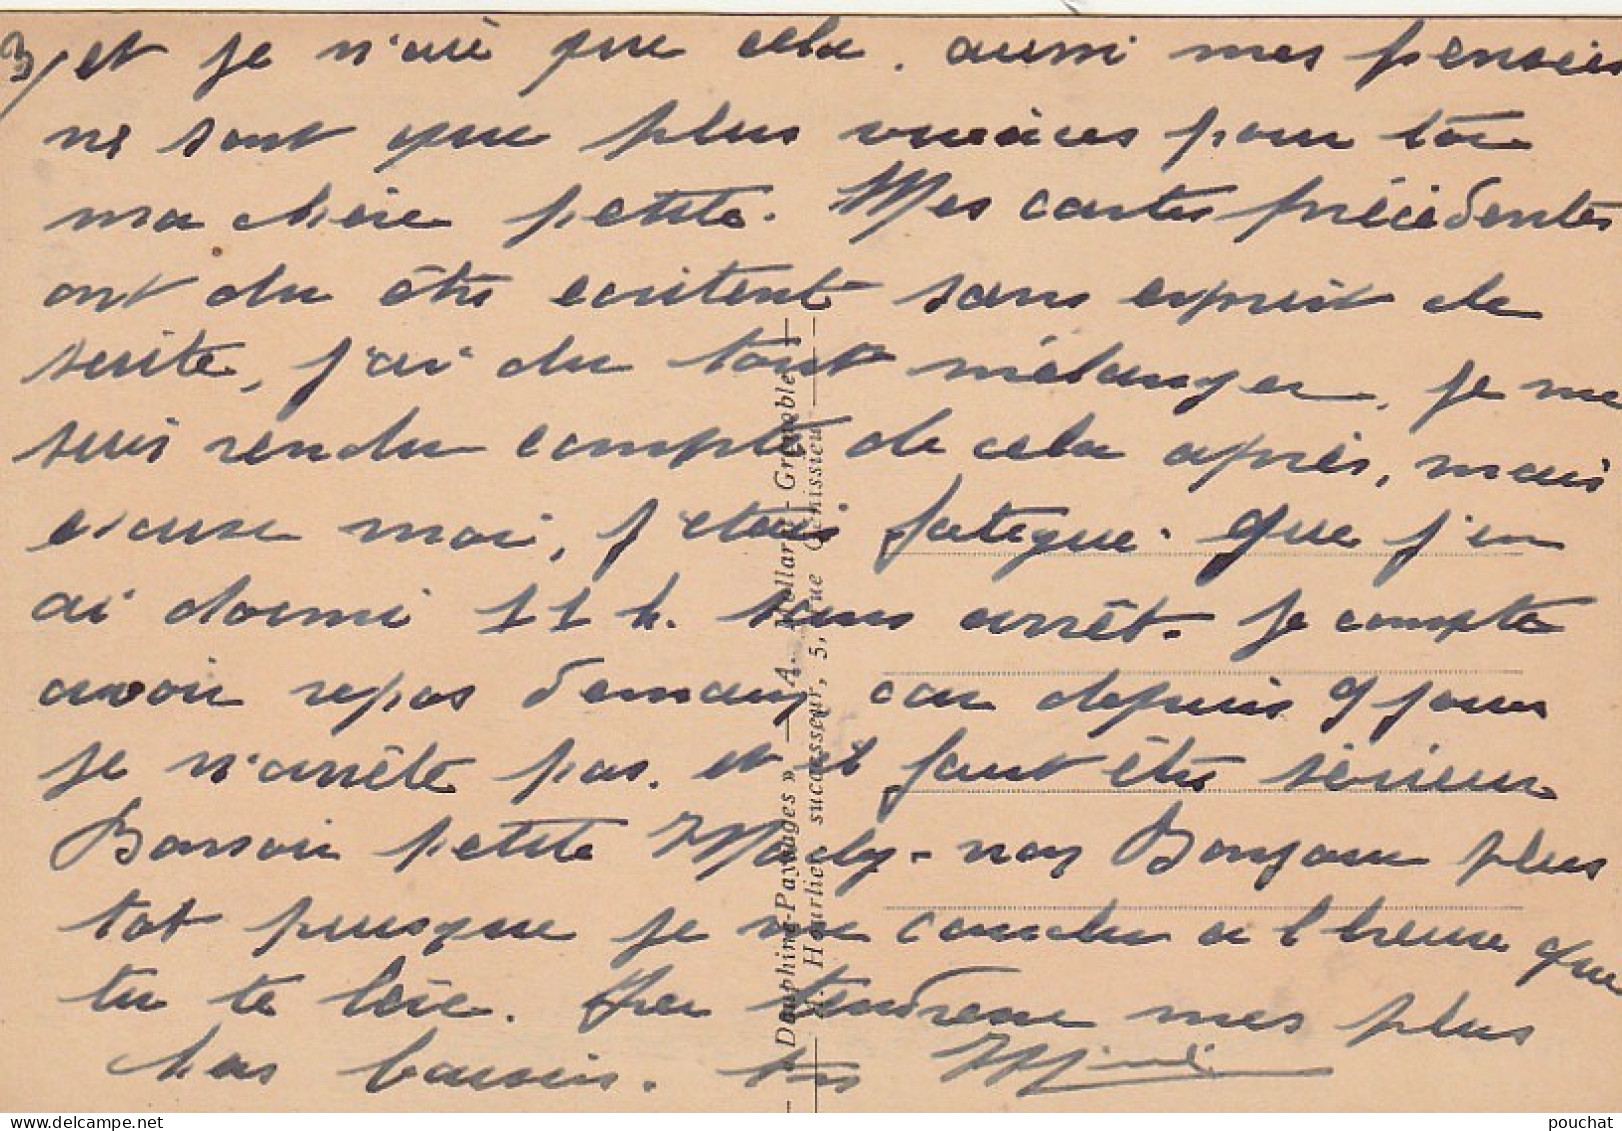 3/ et je n'ai que cela. aussi mes pensées
ne sont que plus vraies pour toi
ma chère petite. Mes cartes précédentes
ont du être écrites sans esprit de
suite, j'ai du tout mélanger. je me
suis rendu compte de cela après, mais
excuse moi, j'étais fatigué. que j'en
ai dormi 11 h. sans arrêt. Je compte
avoir repos demain car depuis 9 jours
je n'arrête pas. et il faut être sérieux
Bonsoir petite Maly - non Bonjour plus
tot puisque je me conduis a l heure que
tu te lève. Les tendresse mes plus
bas baisers. ton
« Dauphiné-Paysages » — A. Mollaret - Grenoble
H. Hourlier, successeur, 5, rue Génissieu
pouchat